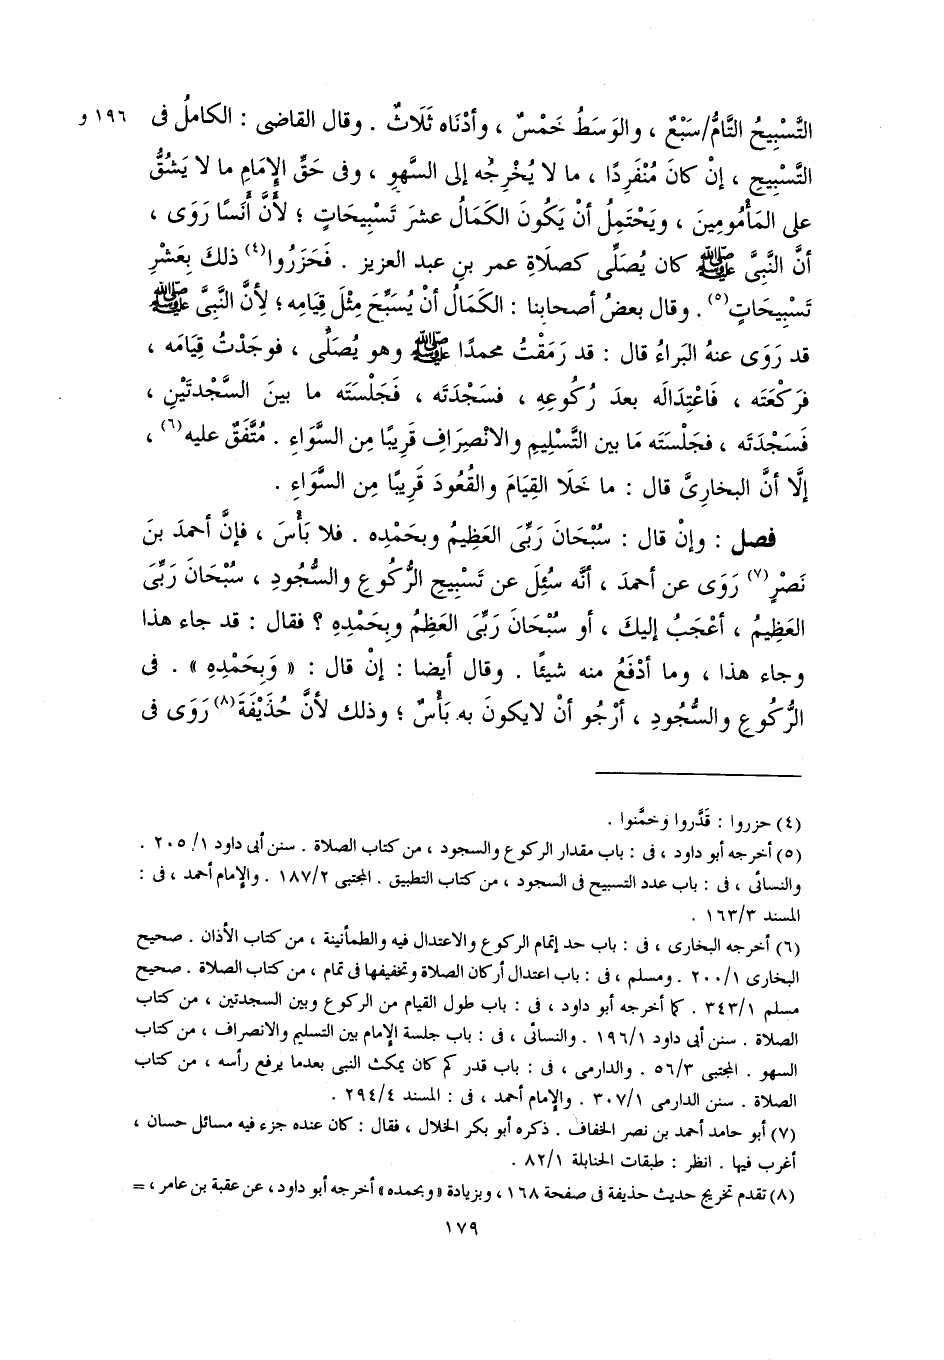 التَّسْبِيحُ التَّامُّ/سَبْعٌ ، والوَسَطُ خَمْسٌ ، وأدْنَاه ثَلَاثٌ . وقال القاضى : الكاملُ فى ١٩٦ و
التَّسْبِيحِ ، إنْ كانَ مُنْفَرِدًا ، ما لا يُخْرِجُه إلى السَّهوِ ، وفى حَقِّ الإِمَامِ ما لا يَشُقُّ
على المَأْمُومِينَ ، ويَحْتَمِلُ أنْ يَكُونَ الكَمَالُ عشرَ تَسْبِيحَاتٍ ؛ لأَنَّ أنَسًا رَوَى ،
أنَّ النَّبِىَّ ﷺ كان يُصَلِّى كصلاةِ عمر بنِ عبد العزيز . فَحَزَرُوا(٤) ذلكَ بِعَشْرِ
تَسْبِيحَاتٍ(٥) . وقال بعضُ أصحابنا : الكَمَالُ أنْ يُسَبِّحَ مِثْلَ قِيَامِه ؛ لِأنَّ النَّبِىَّ ﷺ
قد رَوَى عنهُ البَراءُ قال : قد رَمَقْتُ محمدًا ﷺ وهو يُصَلِّى ، فوجَدْتُ قِيَامَه ،
فرَكْعَتَه ، فَاعْتِدَالَه بعدَ رُكُوعِهِ ، فسَجْدَتَه ، فَجَلْسَتَه ما بينَ السَّجْدتَيْنِ ،
فَسَجْدَتَه ، فجَلْسَتَه مَا بين التَّسْلِيمِ والانْصِرَافِ قَرِيبًا مِن السَّوَاءِ . مُتَّفَقٌ عليه(٦) ،
إلَّا أنَّ البخارِىَّ قال : ما خَلَا القِيَامَ والقُعُودَ قَرِيبًا مِن السَّوَاءِ .
فصل : وإنْ قال : سُبْحَانَ رَبِّىَ العَظِيمُ وبحَمْدِه . فلا بَأْسَ ، فإنَّ أحمدَ بنَ
نَصْرٍ(٧) رَوَى عن أحمدَ ، أنَّه سُئِلَ عن تَسْبِيحِ الرُّكُوعِ والسُّجُودِ ، سُبْحَانَ رَبِّىَ
العَظِيمُ ، أعْجَبُ إليكَ ، أو سُبْحَانَ رَبِّىَ العَظِمُ وبِحَمْدِهِ ؟ فقال : قد جاء هذا
وجاء هذا ، وما أدْفَعُ منه شيئًا . وقال أيضا : إنْ قال : « وَبِحَمْدِهِ » . فى
الرُّكُوعِ والسُّجُودِ ، أرْجُو أنْ لايكونَ به بَأْسٌ ؛ وذلك لأنَّ حُذَيْفَةَ(٨) رَوَى فى
(٤) حزروا : قَدَّروا وخمَّنوا .
(٥) أخرجه أبو داود ، فى : باب مقدار الركوع والسجود ، من كتاب الصلاة . سنن أبى داود ١/ ٢٠٥ .
والنسائى ، فى : باب عدد التسبيح فى السجود ، من كتاب التطبيق . المجتبى ١٨٧/٢ . والإمام أحمد ، فى :
المسند ١٦٣/٣ .
(٦) أخرجه البخارى ، فى : باب حد إتمام الركوع والاعتدال فيه والطمأنينة ، من كتاب الأذان . صحيح
البخارى ٢٠٠/١ . ومسلم ، فى : باب اعتدال أركان الصلاة وتخفيفها فى تمام ، من كتاب الصلاة . صحيح
مسلم ٣٤٣/١ . كما أخرجه أبو داود ، فى : باب طول القيام من الركوع وبين السجدتين ، من كتاب
الصلاة . سنن أبى داود ١٩٦/١ . والنسائى ، فى : باب جلسة الإمام بين التسليم والانصراف ، من كتاب
السهو . المجتبى ٥٦/٣ . والدارمى ، فى : باب قدر كم كان يمكث النبى بعدما يرفع رأسه ، من كتاب
الصلاة . سنن الدارمى ٣٠٧/١ . والإمام أحمد ، فى : المسند ٢٩٤/٤ .
(٧) أبو حامد أحمد بن نصر الخفاف . ذكره أبو بكر الخلال ، فقال : كان عنده جزء فيه مسائل حسان ،
أغرب فيها . انظر : طبقات الحنابلة ٨٢/١ .
(٨) تقدم تخريج حديث حذيفة فى صفحة ١٦٨ ، وبزيادة «وبحمده» أخرجه أبو داود ، عن عقبة بن عامر ، =
١٧٩